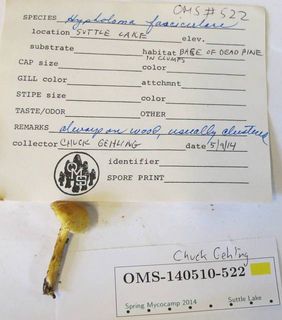 OMS #522
SPECIES Hypholoma fasciculare
location SUTTLE LAKE elev.
substrate habitat BASE OF DEAD PINE
IN CLUMPS
CAP size color
GILL color attchmnt
STIPE size color
TASTE/ODOR OTHER
REMARKS always on wood, usually clustered
collector CHUCK GEHLING date 5/9/14
identifier
SPORE PRINT
OMS
Chuck Gehling
OMS-140510-522
Spring Mycocamp 2014 Suttle Lake